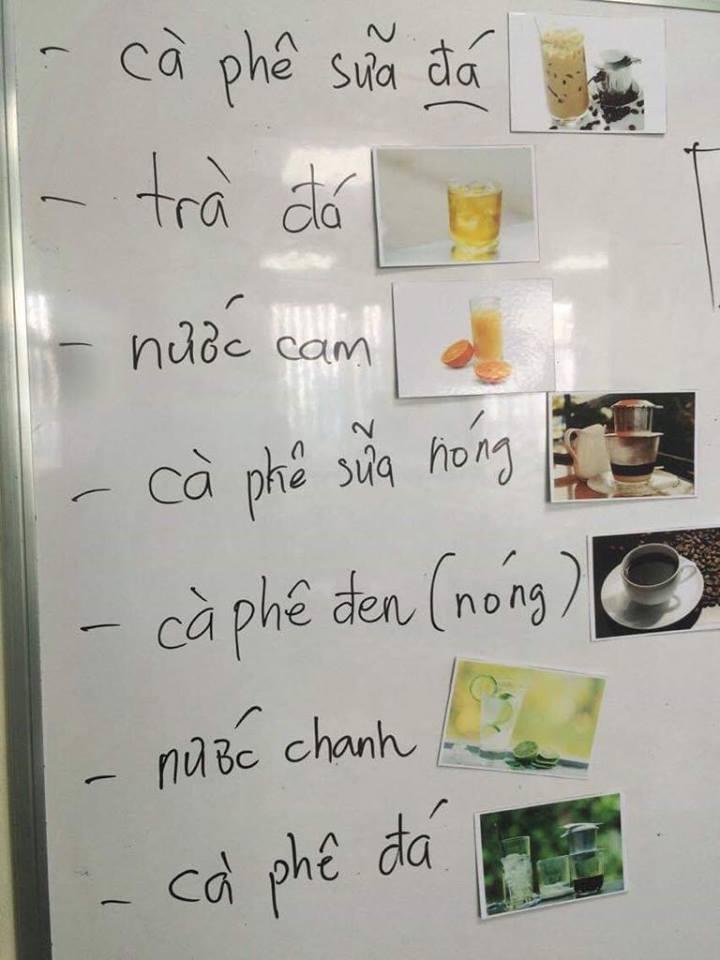 - cà phê sữa đá
- trà đá
- nước cam
- cà phê sữa nóng
- cà phê đen (nóng)
- nước chanh
- cà phê đá